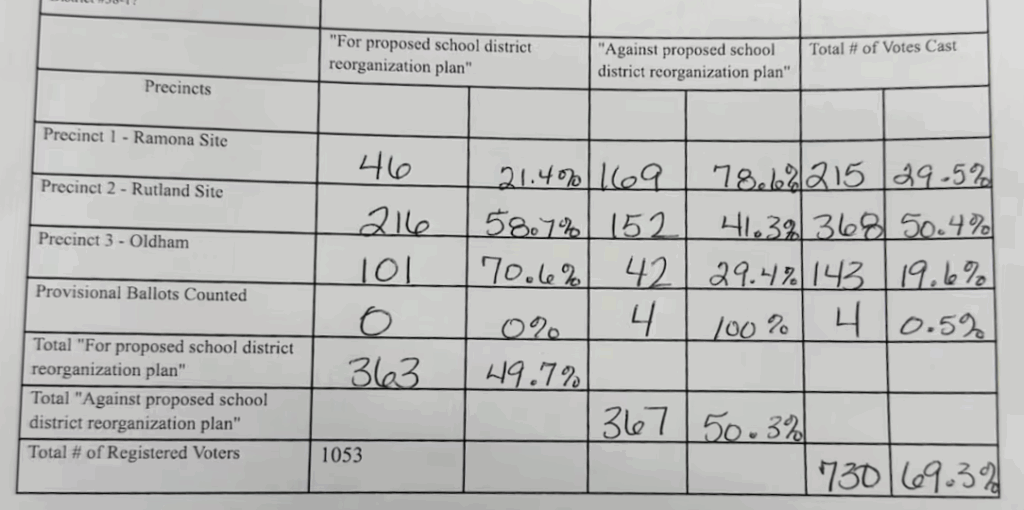 "For proposed school district
reorganization plan"
"Against proposed school
district reorganization plan"
Total # of Votes Cast
Precincts
Precinct 1 - Ramona Site
46 21.4% 169 78.6% 215 29.5%
Precinct 2 - Rutland Site
216 58.7% 152 41.3% 368 50.4%
Precinct 3 - Oldham
101 70.6% 42 29.4% 143 19.6%
Provisional Ballots Counted
0 0% 4 100% 4 0.5%
Total "For proposed school district
reorganization plan"
363 49.7%
Total "Against proposed school
district reorganization plan"
367 50.3%
Total # of Registered Voters 1053
730 69.3%